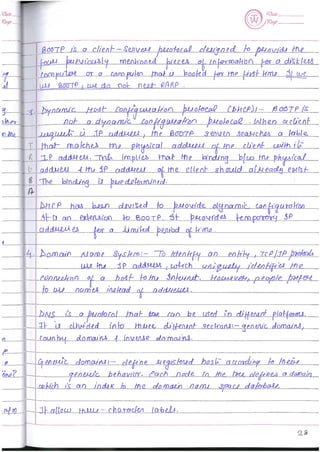 BOOTP is a client-server protocol designed to provide the
four previously mentioned pieces of information for a diskless
computer or a computer that is booted for the first time. If we
use BOOTP, we do not need RARP.
3. Dynamic Host Configuration protocol (DHCP):- BOOTP is
not a dynamic configuration protocol. When a client
requests its IP address, the BOOTP server searches a table
that matches the physical address of the client with its
IP address. This implies that the binding b/w the physical
address & the IP address of the client should already exist.
The binding is predetermined.
DHCP has been devised to provide dynamic configuration
It is an extension to BOOTP. It provides temporary IP
addresses for a limited period of time.
4. Domain Name System:- To identify an entity, TCP/IP protocols
use the IP address, which uniquely identifies the
connection of a host to the Internet. However, people prefer
to use names instead of addresses.
DNS is a protocol that can be used in different platforms.
It is divided into three different sections:- generic domains,
country domains & inverse domains.
Generic domains:- define registered hosts according to their
generic behavior. Each node in the tree defines a domain,
which is an index to the domain name space database.
It allow three-character labels.
23